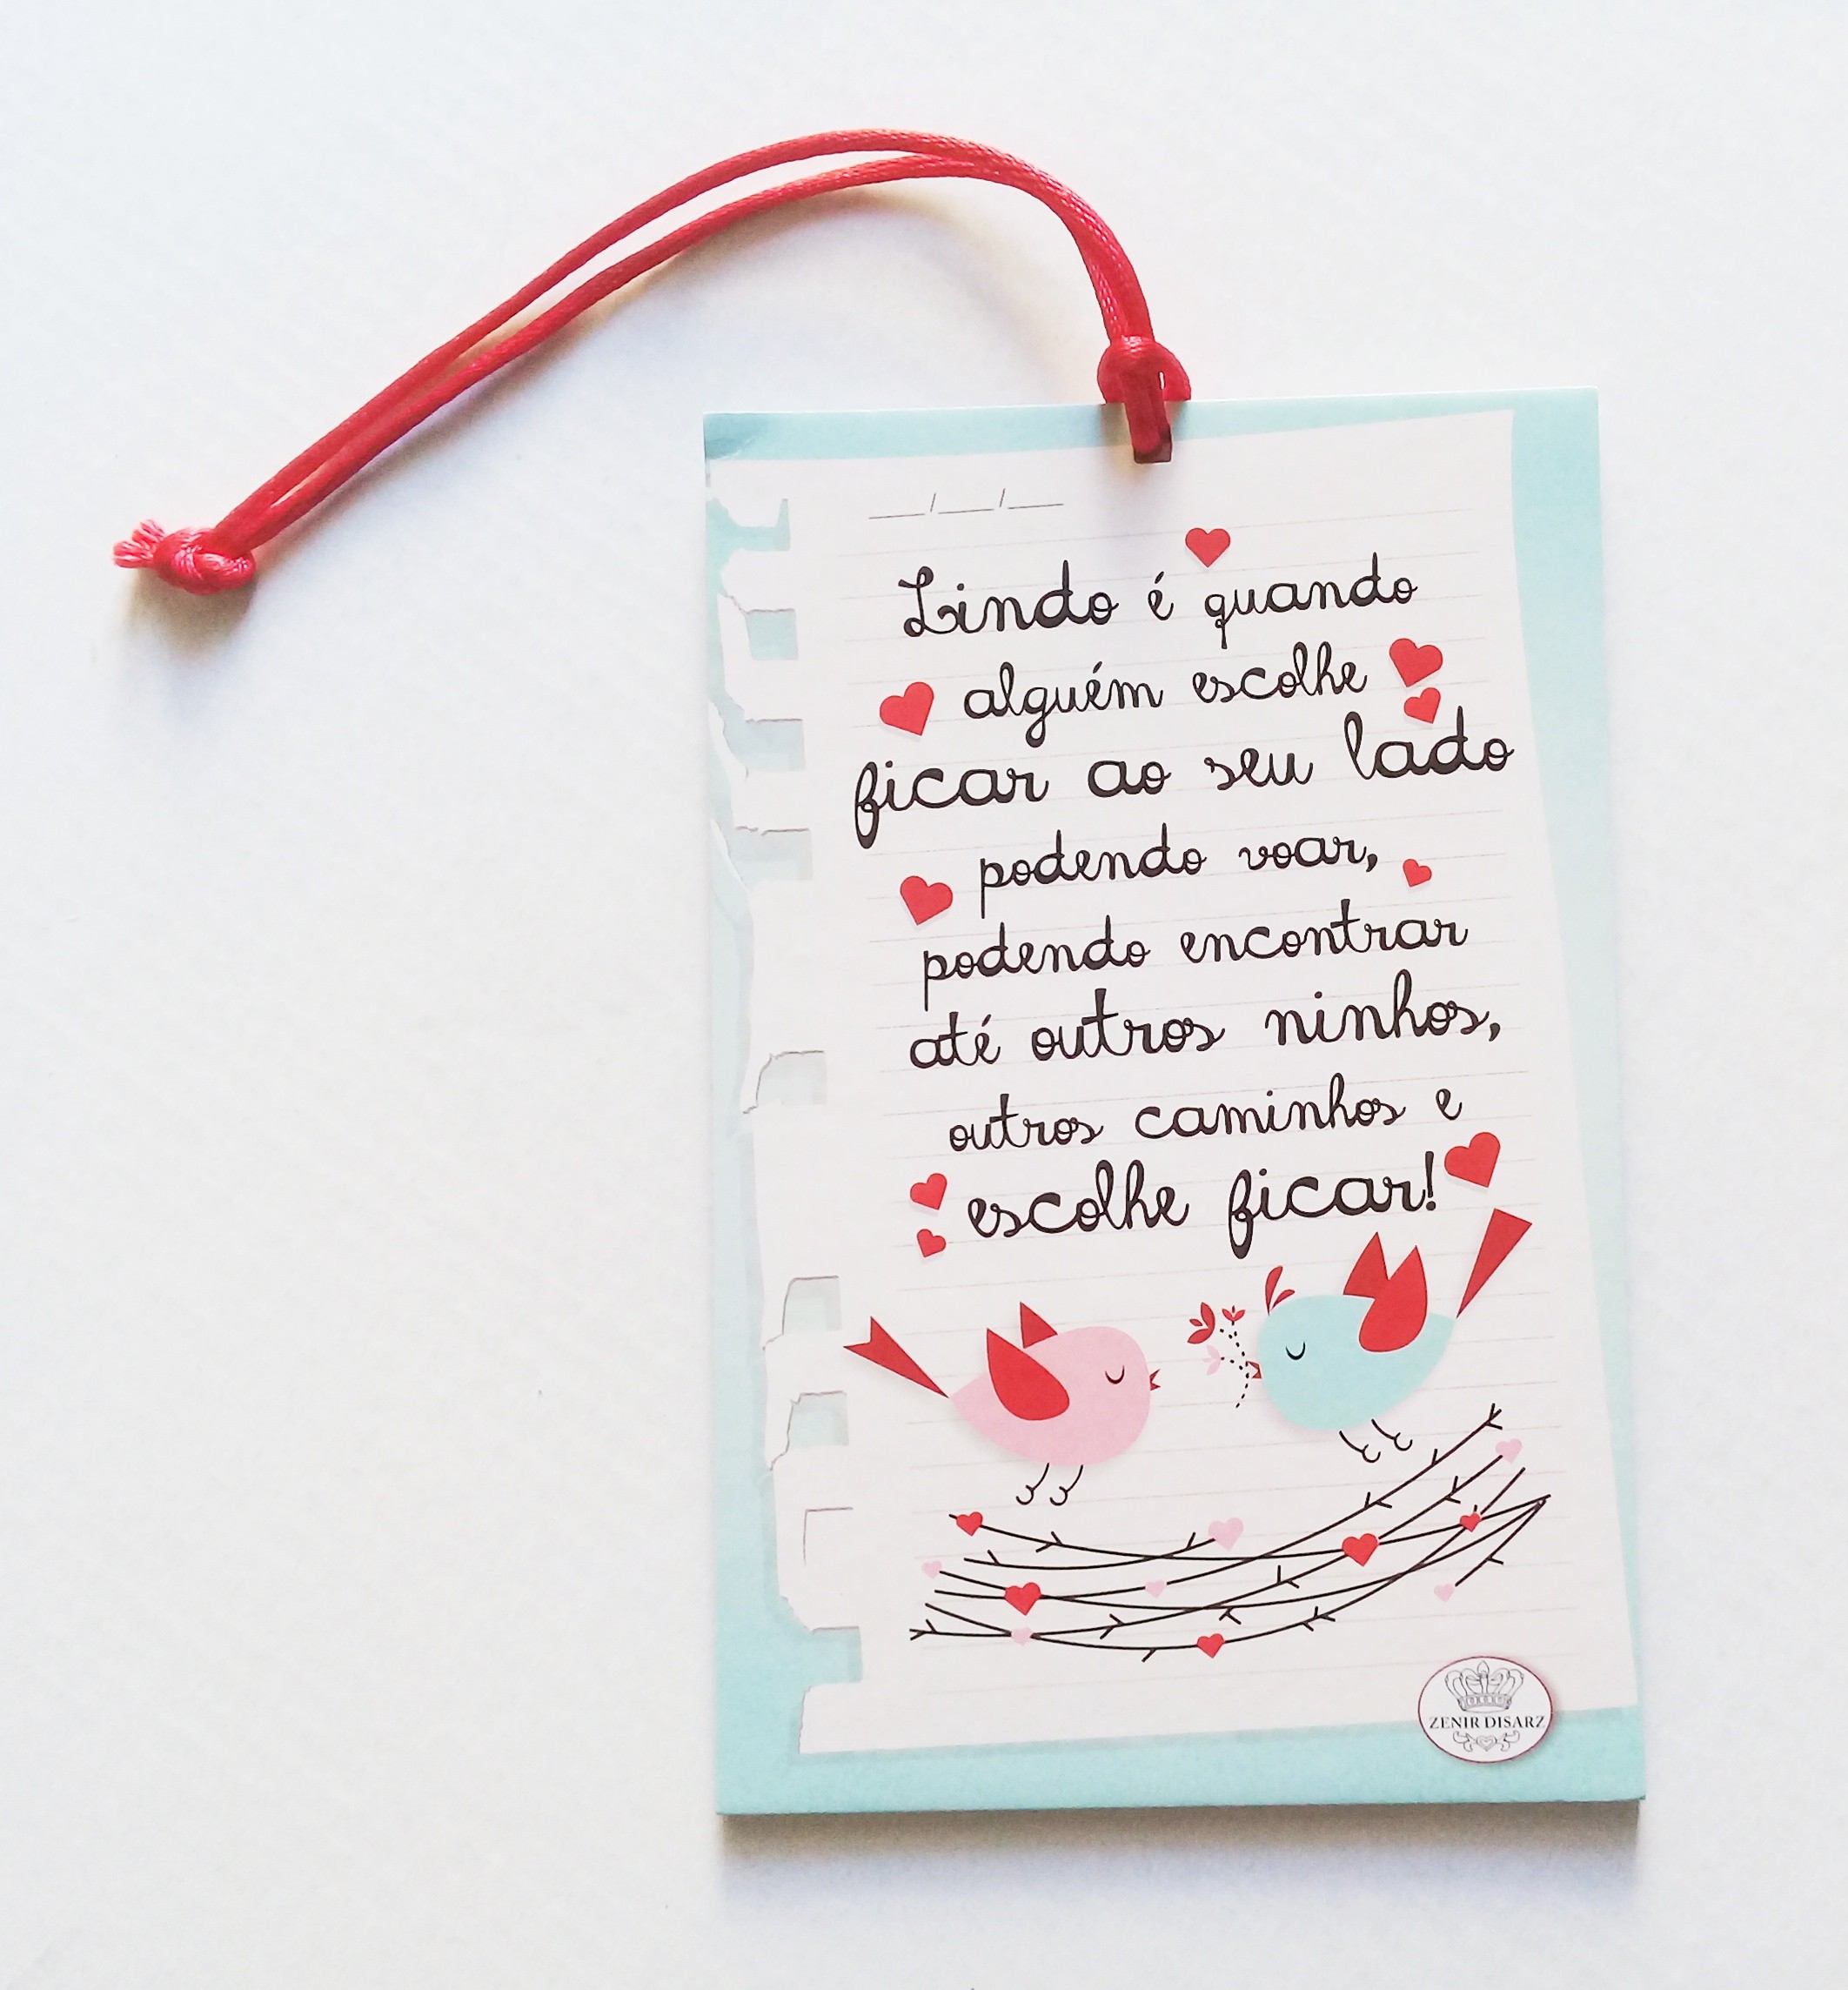 ___/___/___
Lindo é quando
alguém escolhe
ficar ao seu lado
podendo voar,
podendo encontrar
até outros ninhos,
outros caminhos e
escolhe ficar!
ZENIR DISARZ